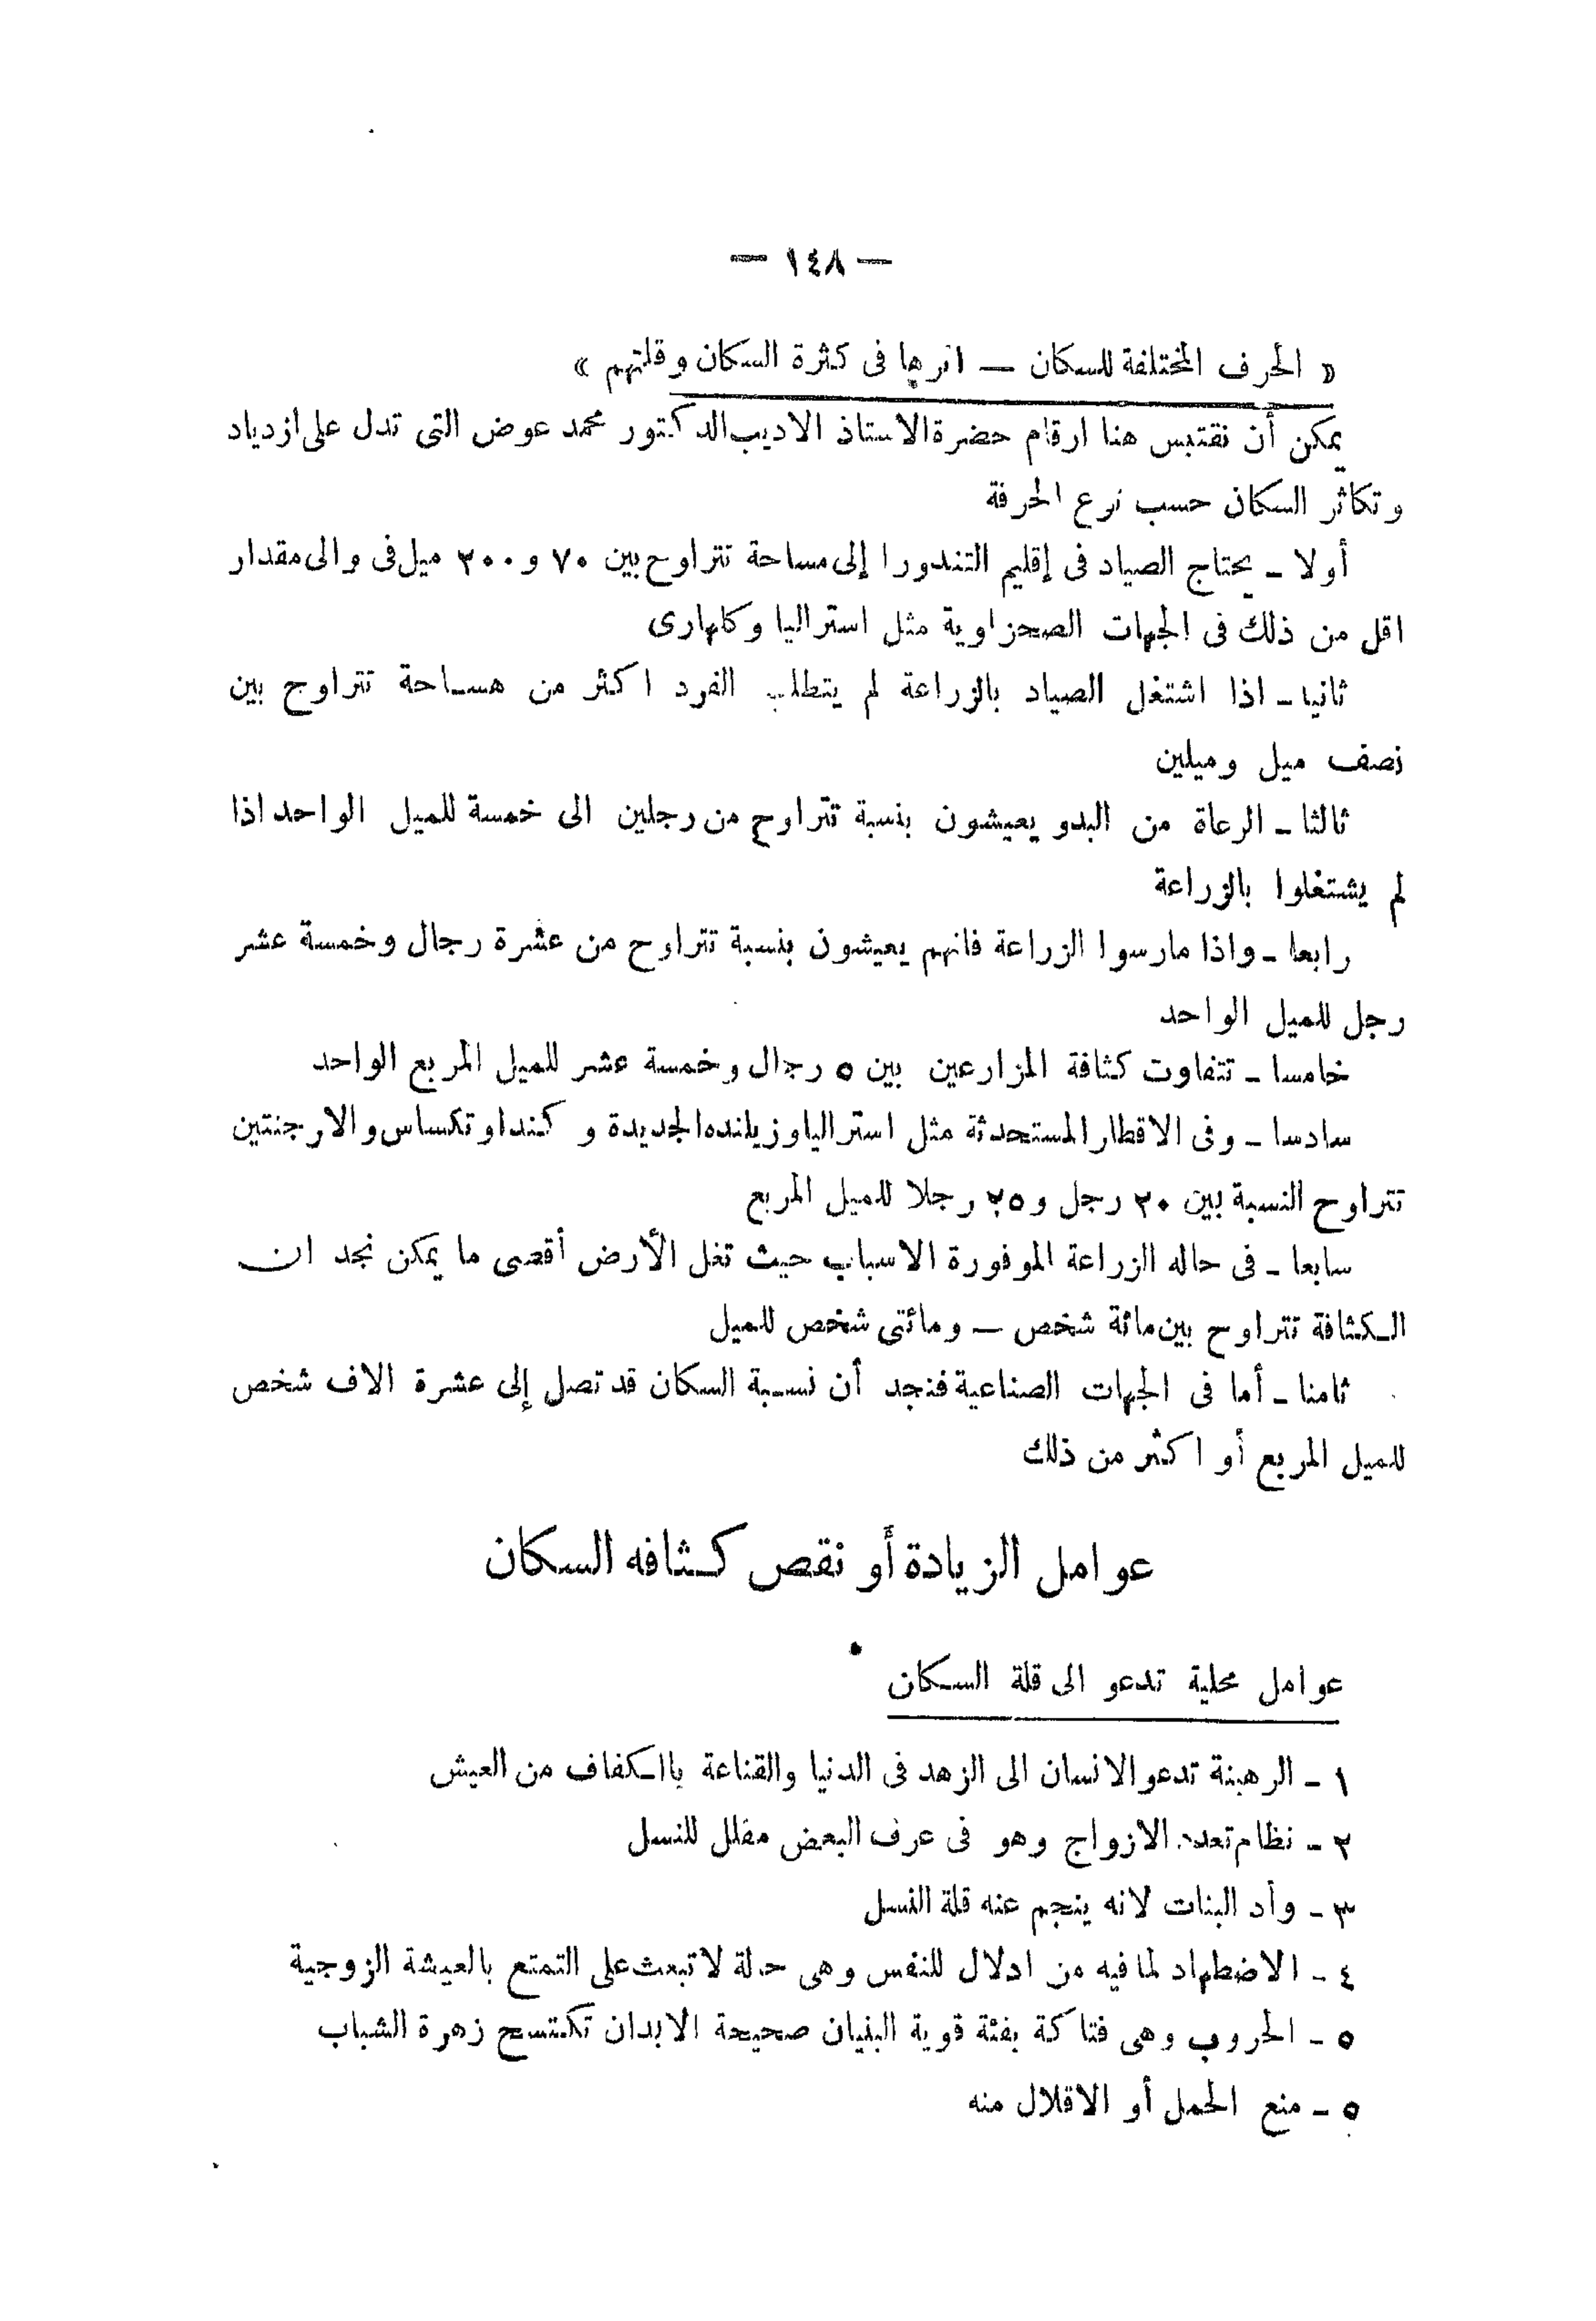 — ١٤٨ —
« الحرف المختلفة للسكان — اثرها فى كثرة السكان وقلتهم »
يمكن أن نقتبس هنا ارقام حضرة الاستاذ الاديب الدكتور محمد عوض التى تدل على ازدياد
وتكاثر السكان حسب نوع الحرفة
أولا ـ يحتاج الصياد فى إقليم التندورا إلى مساحة تتراوح بين ٧٠ و ٢٠٠ ميل فى والى مقدار
اقل من ذلك فى الجهات الصحزاوية مثل استراليا وكلهارى
ثانيا ـ اذا اشتغل الصياد بالزراعة لم يتطلب الفرد اكثر من مساحة تتراوح بين
نصف ميل وميلين
ثالثا ـ الرعاة من البدو يعيشون بنسبة تتراوح من رجلين الى خمسة للميل الواحد اذا
لم يشتغلوا بالزراعة
رابعا ـ واذا مارسوا الزراعة فانهم يعيشون بنسبة تتراوح من عشرة رجال وخمسة عشر
رجل للميل الواحد
خامسا ـ تتفاوت كثافة المزارعين بين ٥ رجال وخمسة عشر للميل المربع الواحد
سادسا ـ وفى الاقطار المستحدثة مثل استراليا وزيلنده الجديدة و كندا و تكساس والارجنتين
تتراوح النسبة بين ٢٠ رجل و ٢٥ رجلا للميل المربع
سابعا ـ فى حاله الزراعة الموفورة الاسباب حيث تغل الأرض أقصى ما يمكن نجد ان
الكثافة تتراوح بين مائة شخص — ومائتى شخص للميل
ثامنا ـ أما فى الجهات الصناعية فنجد أن نسبة السكان قد تصل إلى عشرة الاف شخص
للميل المربع أو اكثر من ذلك
عوامل الزيادة أو نقص كثافه السكان
عوامل محلية تدعو الى قلة السكان
١ ـ الرهبنة تدعو الانسان الى الزهد فى الدنيا والقناعة بالكفاف من العيش
٢ ـ نظام تعدد الازواج وهو فى عرف البعض مقلل للنسل
٣ ـ وأد البنات لانه ينجم عنه قلة النسل
٤ ـ الاضطهاد لما فيه من ادلال للنفس وهى حالة لا تبعث على التمتع بالعيشة الزوجية
٥ ـ الحروب وهى فتاكة بفئة قوية البنيان صحيحة الابدان تكتسح زهرة الشباب
٥ ـ منع الحمل أو الاقلال منه